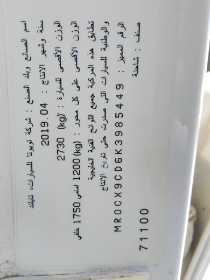 اسم الصانع وبلد الصنع : شركة تويوتا للسيارات، تايلاند
سنة وشهر الانتاج : 2019.04
الوزن الأقصى للسيارة : (kg) 2730
الوزن الأقصى على كل محور : (kg) 1200 امامي 1750 خلفي
تطابق هذه المركبة جميع اللوائح الفنية الخليجية
والوطنية للسيارات التي صدرت حتى تاريخ الانتاج
الرقم المميز : MR0CX9CD6K3985449
صنف : شاحنة
71100